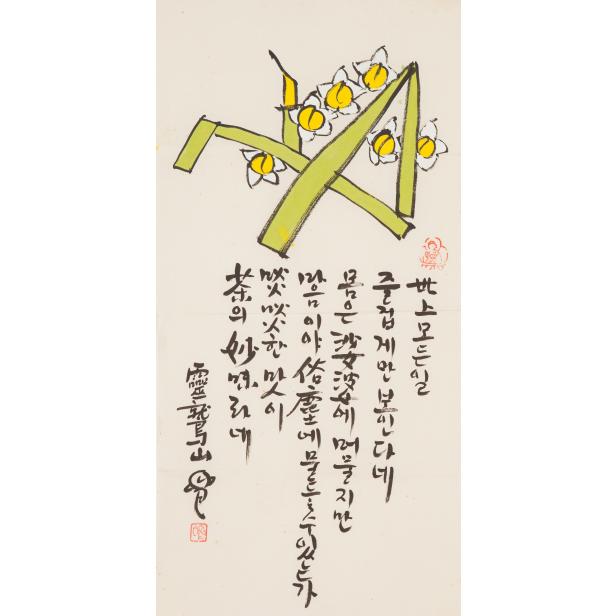 世上모든일
줄겁게만 보인다네
몸은 娑婆에 머물지만
마음이야 俗塵에 물들수있는가
啖啖한 맛이
茶의 妙味라네
靈鷲山